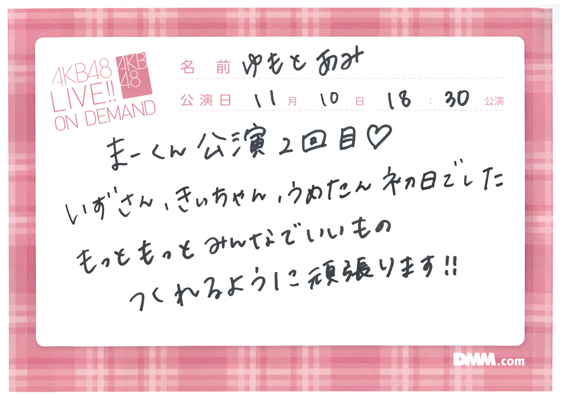 AKB48
LIVE!!
ON DEMAND
AKB
48
名 前 ゆもとあみ
公演日 11 月 10 日 18 : 30 公演
まーくん公演2回目♡
いずさん、きぃちゃん、うめたん初日でした
もっともっとみんなでいいもの
つくれるように頑張ります!!
DMM.com